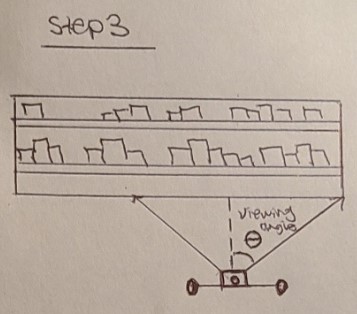 Step 3
viewing
angle
θ